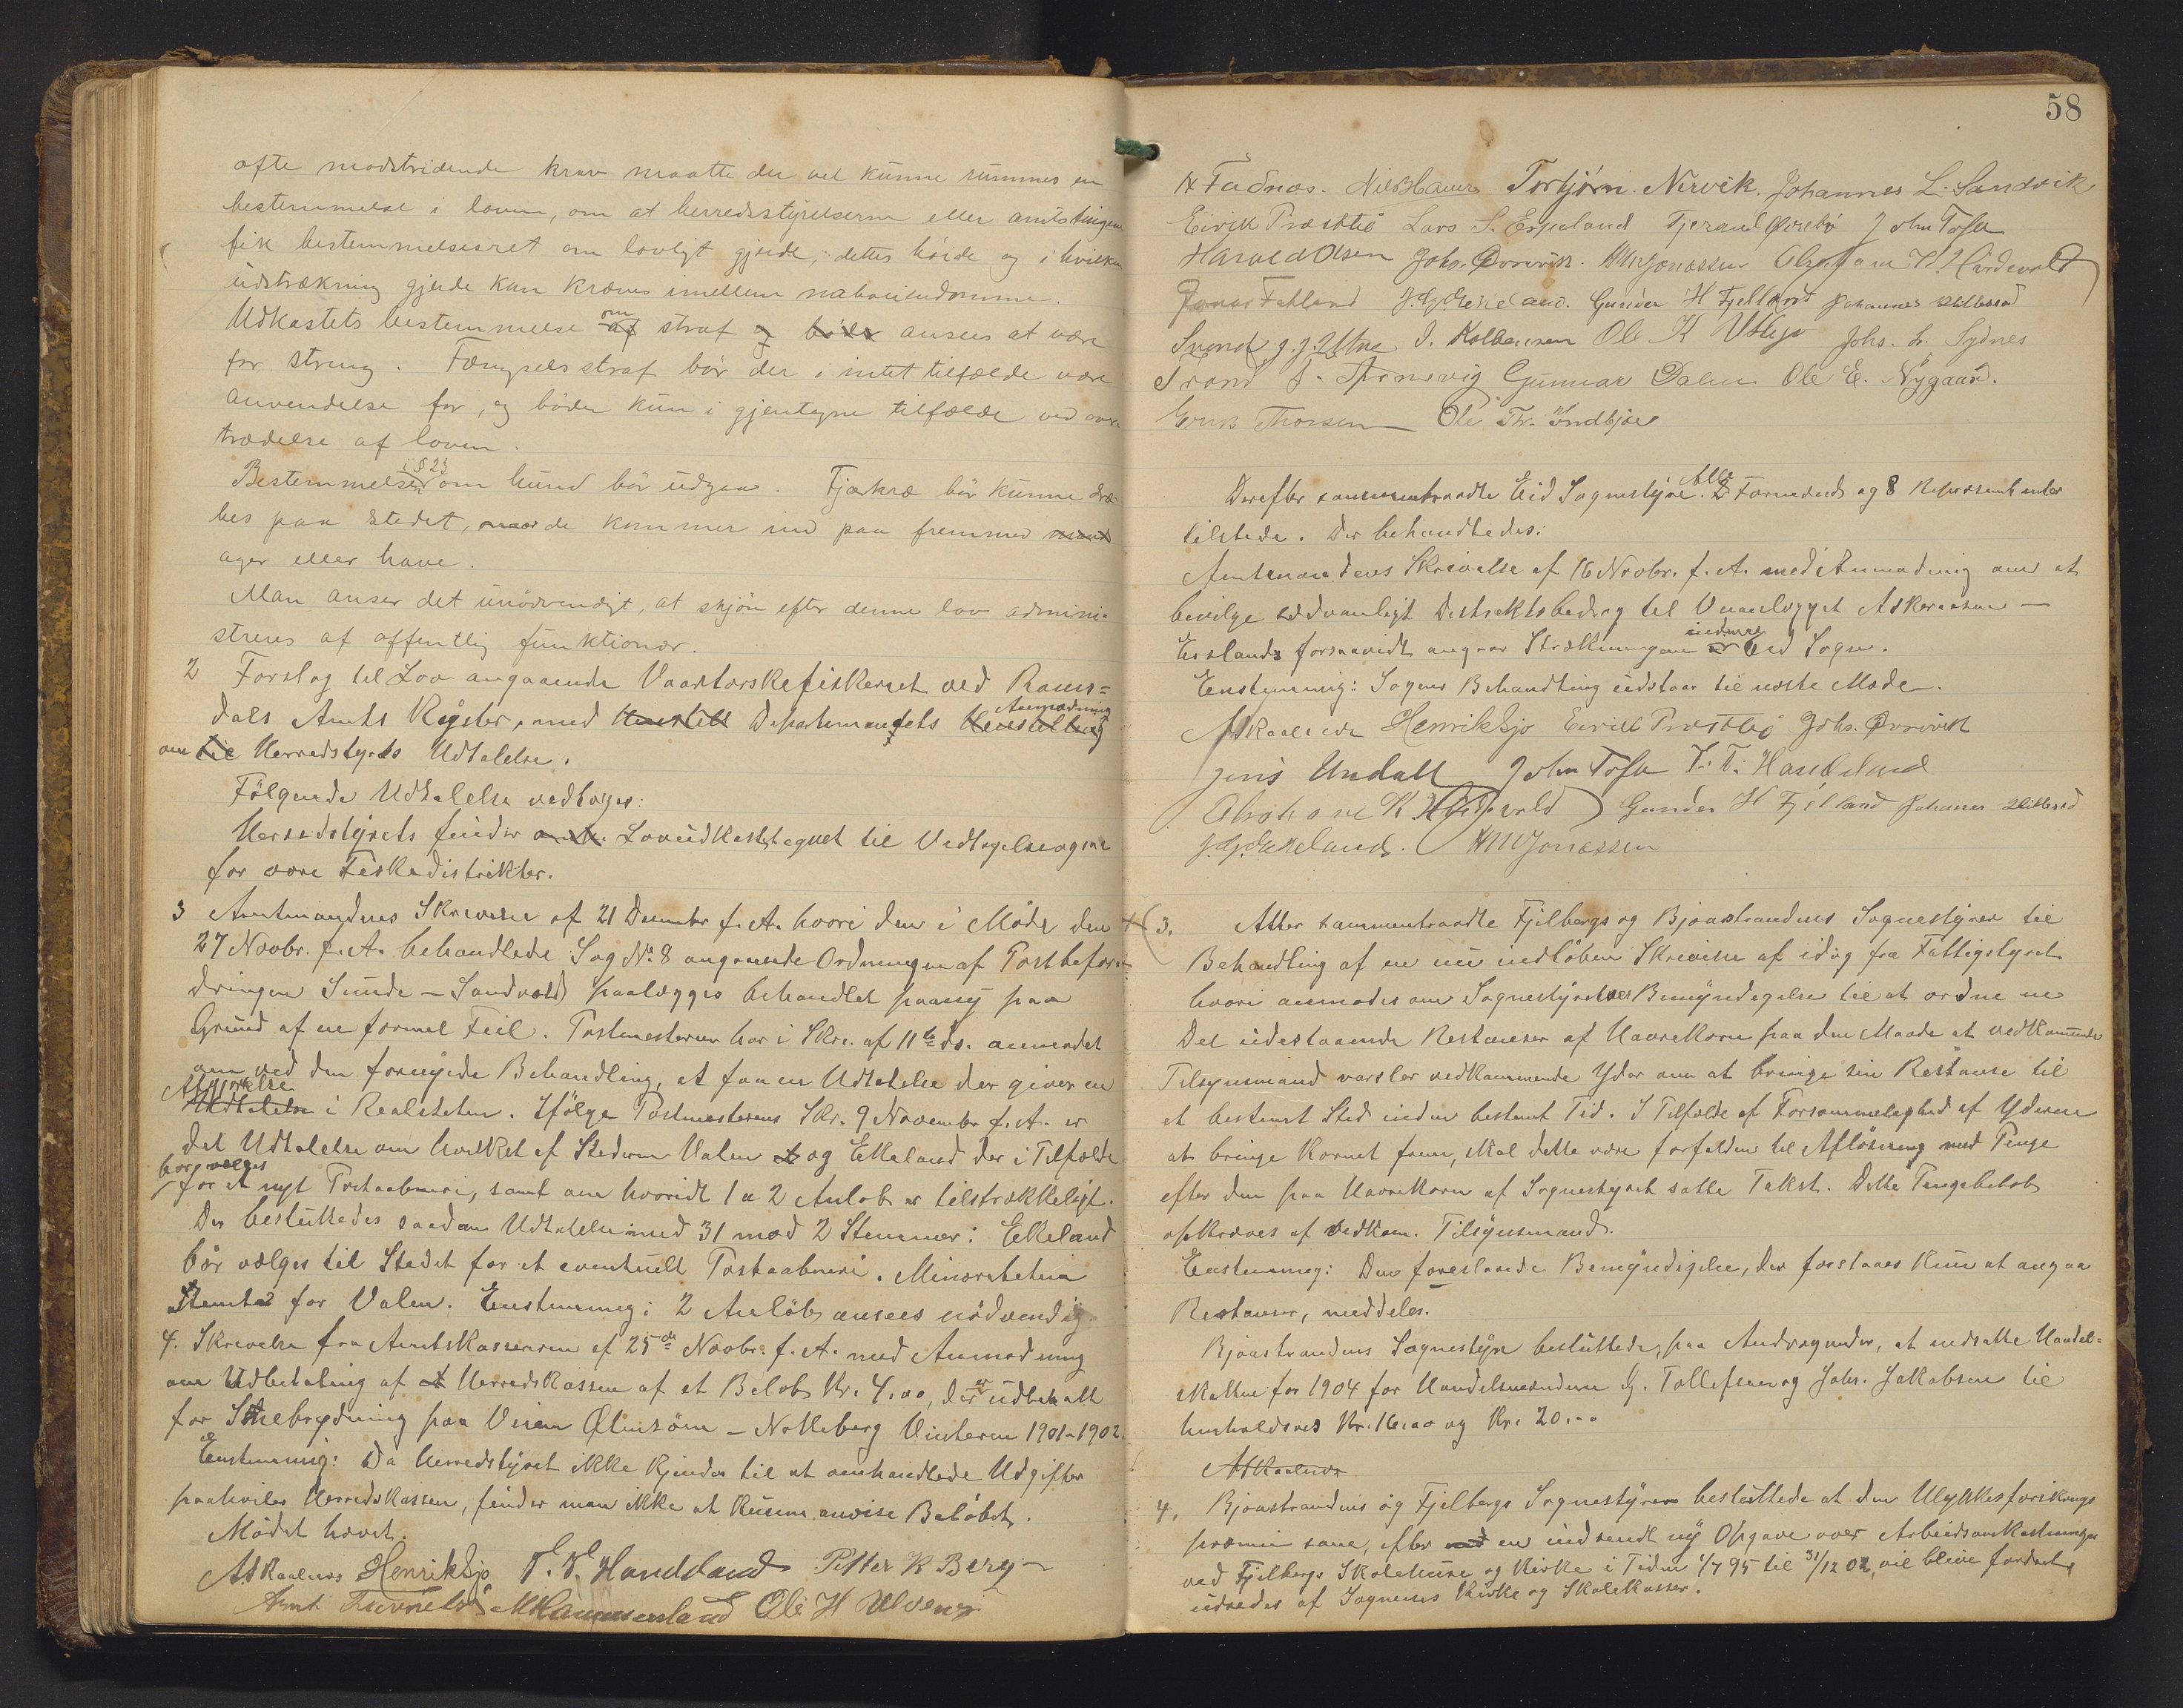 ofte modstridende krav maatte der vel kunne rummes en
bestemmelse i loven, om at herredsstyrelserne eller amtstingene
fik bestemmelsesret om lovligt gjærde, dettes höide og i hvilken
udstrækning gjerde kan kræves imellem naboeiendomme.
Udkastets bestemmelse om straf og böder ansees at være
for streng. Fængselsstraf bör der i intet tilfælde være
anvendelse for, og böder kun i gjentagne tilfælde ved over-
trædelse af loven.
Bestemmelsen i § 23 om hund bör udgaa. Fjærkræ bör kunne dræ-
bes paa stedet, naar de kommer ind paa fremmed mand
ager eller have.
Man anser det unödvendigt, at skjön efter denne lov admini-
streres af offentlig funktionær.
2 Forslag til Lov angaaende Vaartorskefiskeriet ved Roms=
dals Amts Kyster, med Departementets Anmodning
om Herredstyrets Udtalelse.
Fölgende Udtalelse vedtoges:
Herredstyrets finder Lovudkastet egnet til Vedtagelse ogsaa
for vore Fiskedistrikter.
3 Amtmandens Skrivelse af 21 December f. A. hvori den i Möde den
27 Novbr. f. A. behandlede Sag No. 8 angaaende Ordningen af Postbefor-
dringen Sunde - Sandvold paalægges behandlet paany paa
Grund af en formel Feil. Postmesteren har i Skr. af 11te ds. anmodet
om ved den fornyede Behandling, at faa en Udtalelse der giver en
Afgjørelse i Realiteten. Ifölge Postmesterens Skr. 9 November f. A. er
det Udtalelse om hvilket af Stederne Valen og Ekeland der i Tilfælde
bør vælges for et nyt Postaabneri, samt om hvorvidt 1 a 2 Anlöb er tilstrækkeligt.
Der besluttedes saadan Udtalelse med 31 mod 2 Stemmer: Ekeland
bör vælges til Stedet for et eventuelt Postaabneri. Minoriteten
stemte for Valen. Enstemmig: 2 Anlöb ansees nödvendig.
4. Skrivelse fra Amtskassereren af 25de Novbr. f. A. med Anmodning
om Udbetaling af Herredskassen af et Beløb Kr. 4,00, der er udbetalt
for Snebrydning paa Veien Ølensöen - Notteberg Vinteren 1901-1902.
Enstemmig: Da Herredstyret ikke kjender til at omhandlede Udgifter
paahviler Herredskassen, finder man ikke at kunne anvise Beløbet.
Mödet hævet.
A. Skaalnes Henrik Sjo T. T. Handeland Petter K Berg
Arnt Ole H Ulven
58
N Fadnæs. Nils Hauer Torbjörn Nervik. Johannes L. Sandvik
Eirik Præstbö Lars S. Espeland Tjerand Øvrebö John Tofte
Harald Olsen Johs. Øvrevik. HM Jonassen Abraham K Hardewold
Jonas Fatland J. G. Ekeland. Gunder H Fjelland Johannes
Svend J. J. Utne J. Kolbensen Ole K Johs. L. Sydnes
Trond J. Arnevig Gunnar Dalen Ole E. Nygaard.
Erik Thorsen Ole Th. Indbjoe
Derefter sammentraadte Eid Sognestyre. Alle Formænd og 8 Repræsentanter
tilstede. Der behandledes:
Amtmandens Skrivelse af 16 Novbr. f. A. med Anmodning om at
bevilge sædvanligt Distriktsbidrag til Veianlægget Aakeraasen -
Eislands forsaavidt angaar Strækningen indenfor Eid Sogn.
Enstemmig: Sagens Behandling udstaar til næste Møde.
A Skaalnes Henrik Sjo Eirik Præstbö Johs. Øvrevik
Jens Undall John Tofte T. T. Handeland
Abraham K Hardewold Gunder H Fjelland Johannes
J. G. Ekeland. HM Jonassen
3. Atter sammentraadte Fjelbergs og Bjoastrandens Sognestyrer til
Behandling af en nu indlöben Skrivelse af idag fra Fattigstyret
hvori anmodes om Sognestyrets Bemyndigelse til at ordne
Det udestaaende Restancer af Havrekorn paa den Maade at vedkommende
Tilsynsmand varsler vedkommende Yder om at bringe sin Restance til
et bestemt Sted inden bestemt Tid. I Tilfælde af Forsømmelighed af Yderen
at bringe Kornet frem, skal dette være forfalden til Aflösning med Penge
efter den paa Havrekorn af Sognestyret satte Takst. Dette Pengebeløb
opkræves af vedkom. Tilsynsmand.
Enstemmig: Den foreslaaede Bemyndigelse, der forstaaes kun at angaa
Restancer, meddeles.
Bjoastrandens Sognestyre besluttede, paa Andragender, at nedsætte Handel-
skatten for 1904 for Handelsmændene G. Tollefsen og Johs. Jakobsen til
henholdsvis Kr. 16,00 og Kr. 20,00
A Skaalnes
4. Bjoastrandens og Fjelbergs Sognestyrer besluttede at den Ulykkesforsikrings
præmie som, efter en indsendt ny Opgave over Arbeidsomkostninger
ved Fjelbergs Skolehuse og Kirke i Tiden 1/7 95 til 31/12 02, vil blive fordret,
udredes af Sognenes Kirke og Skolekasser.